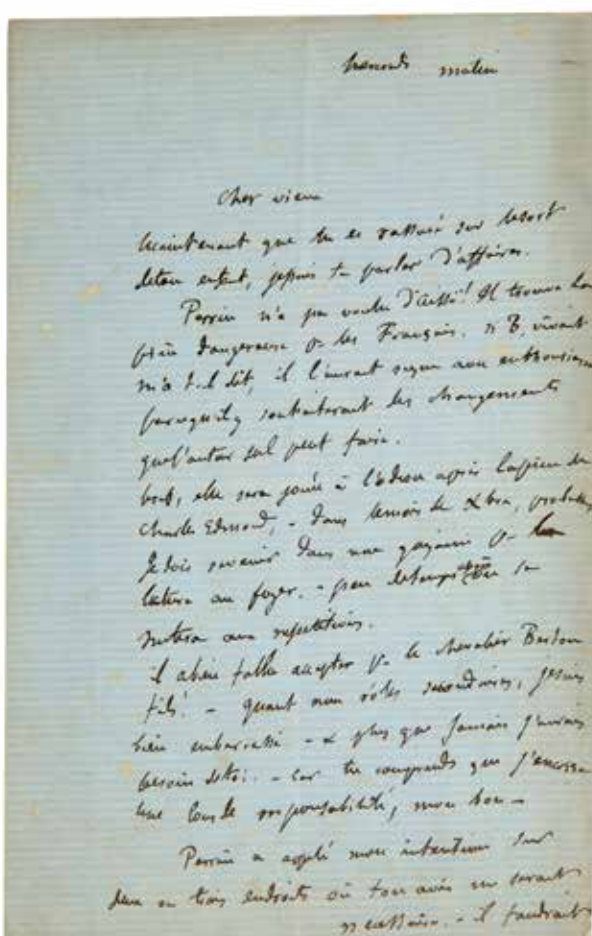 mercredi matin
Cher vieux
Maintenant que tu es rassuré sur le sort
de ton enfant, je puis te parler d'affaires.
Perrin n'a pas voulu d'Aïssé! Il trouve la
pièce dangereuse pr les Français. Si B. vivait
m'a-t-il dit, il l'aurait reçue avec enthousiasme
parce qu'il y souhaiterait des changements
que l'auteur seul peut faire.
bref, elle sera jouée à l'Odéon après la pièce de
Charles Edmond, – dans le mois de Xbre, probablem
Je dois revenir dans une quinzaine pr la
lecture au foyer. – peu de temps après on se
mettra aux répétitions.
il a bien fallu accepter pr le chevalier Berton
fils! – quant aux rôles secondaires, je suis
bien embarrassé – & plus que jamais j'aurais
besoin de toi. – Car tu comprends que j'encours
une lourde responsabilité, mon bon –
Perrin a appelé mon attention sur
deux ou trois endroits où ton avis me serait
nécessaire. – il faudrait